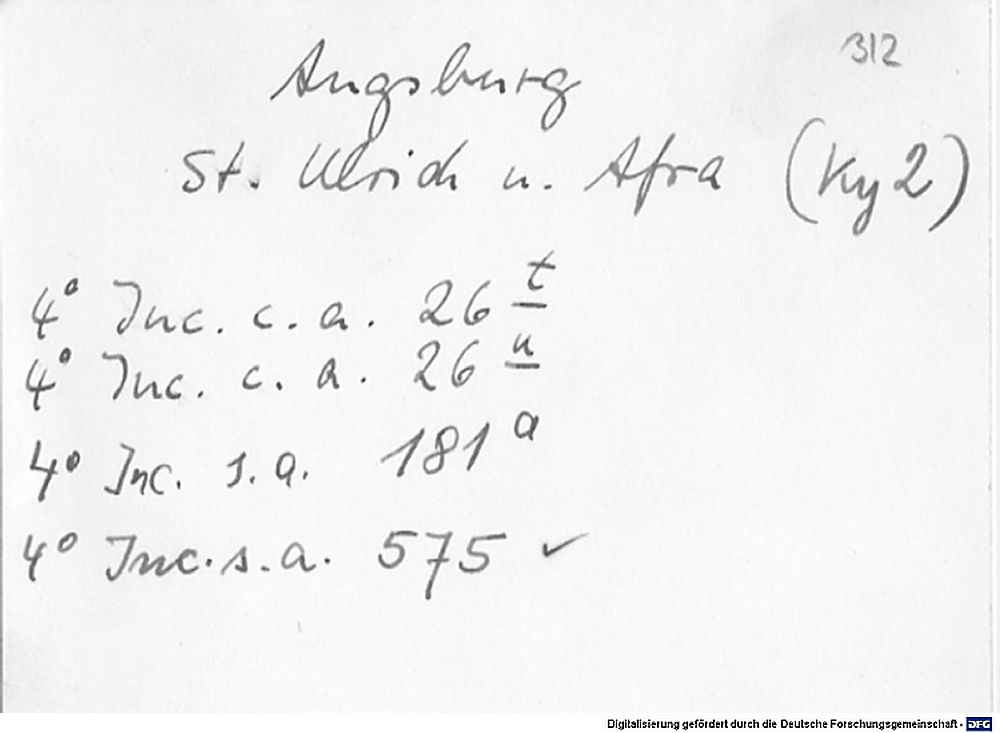 312
Augsburg
St. Ulrich u. Afra (Ky 2)
4° Inc. c. a. 26 t
4° Inc. c. a. 26 u
4° Inc. s. a. 181 a
4° Inc. s. a. 575 ✓
Digitalisierung gefördert durch die Deutsche Forschungsgemeinschaft - DFG